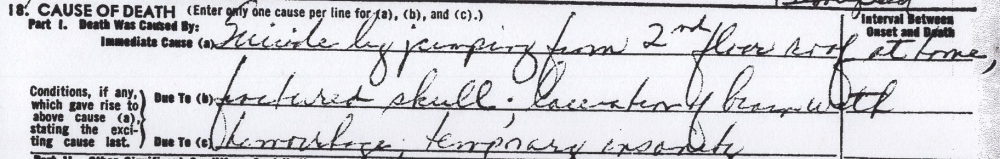 18. CAUSE OF DEATH (Enter only one cause per line for (a), (b), and (c).)
Part I. Death Was Caused By:
Interval Between
Onset and Death
Immediate Cause (a) Suicide by jumping from 2nd floor roof at home;
Conditions, if any,
which gave rise to
above cause (a),
stating the exci-
ting cause last.
Due To (b) fractured skull; laceration of brain with
Due To (c) hemorrhage; temporary insanity